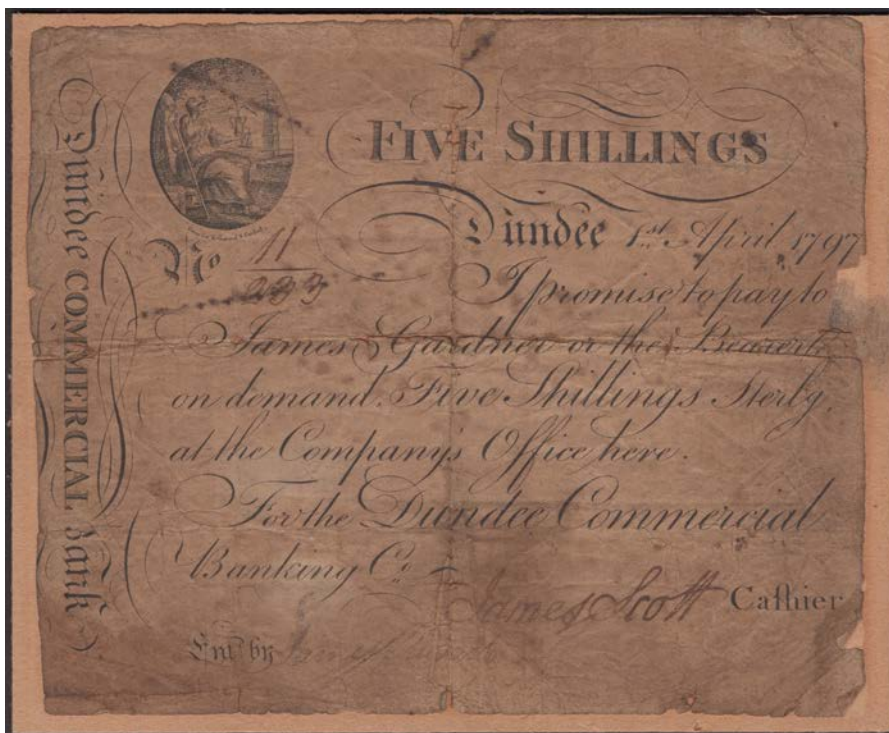 Dundee COMMERCIAL Bank
FIVE SHILLINGS
Dundee 1st. April 1797
No 11
I promise to pay to
James Gardner or the Bearer
on demand, Five Shillings Sterlg.
at the Company's Office here.
For the Dundee Commercial
Banking Co.
James Scott Caſhier
Entd by James